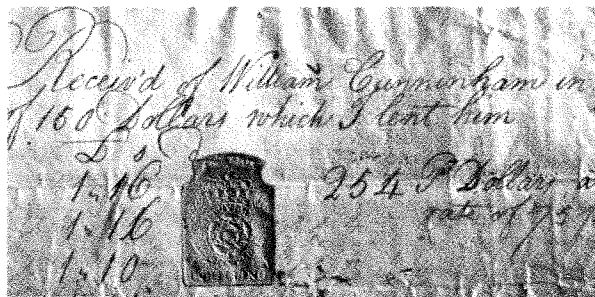 Received of William Cunninham in
of 150 Dollars which I lent him
£ s
1,, 16 254 P Dollars a
1,, 16 rate of 7/5 p
1,, 10